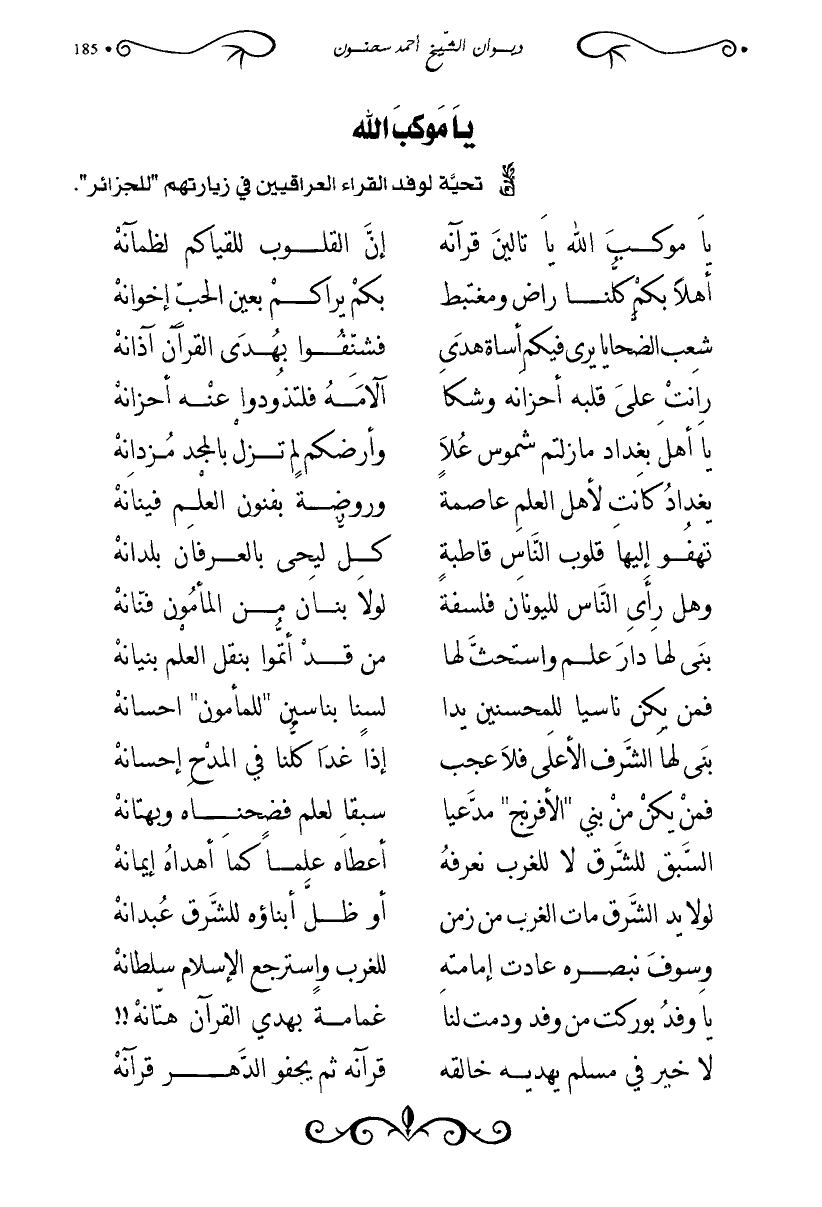 ديوان الشّيخ أحمد سحنون 185
يَا مَوكبَ الله
تحيَّة لوفد القراء العراقيين في زيارتهم "للجزائر".
يَا موكبَ الله يَا تالينَ قرآنه إنَّ القلوب للقياكم لظمآنهْ
أهلاً بكمْ كلنا راض ومغتبط بكمْ يراكمْ بعين الحبّ إخوانهْ
شعب الضحايا يرى فيكم أساة هدَى فشنّفُوا بهُدَى القرآن آذانهْ
رانتْ علىَ قلبه أحزانه وشكا آلامَهُ فلتذودوا عنه أحزانهْ
يا أهلَ بغداد مازلتم شموس عُلاً وأرضكم لم تزل بالمجد مُزدانهْ
بغدادُ كانت لأهل العلم عاصمة وروضة بفنون العلم فينانهْ
تهفو إليها قلوب النَّاس قاطبةً كل ليحى بالعرفان بلدانهْ
وهل رأى النَّاس لليونان فلسفة لولا بنان من المأمُون فتّانهْ
بنَى لها دارَ علم واستحثَّ لها من قدْ أتمّوا بنقل العلم بنيانهْ
فمن يكن ناسيا للمحسنين يدا لسنا بناسين "للمأمون" احسانهْ
بنَى لها الشَّرف الأعلى فلاَ عجب إذا غدَا كلّنا في المدْح إحسانهْ
فمنْ يكنْ منْ بني "الأفرنج" مدَّعيا سبقا لعلم فضحناه وبهتانهْ
السَّبق للشَّرق لا للغرب نعرفهُ أعطاه علماً كما أهداهُ إيمانهْ
لولا يد الشَّرق مات الغرب من زمن أو ظلَّ أبناؤه للشَّرق عُبدانهْ
وسوفَ نبصره عادت إمامته للغرب واسترجع الإسلام سلطانهْ
يا وفدُ بوركت من وفد ودمت لنا غمامة بهدي القرآن هتّانهْ!!
لا خير في مسلم يهديه خالقه قرآنه ثم يجفو الدَّهر قرآنهْ